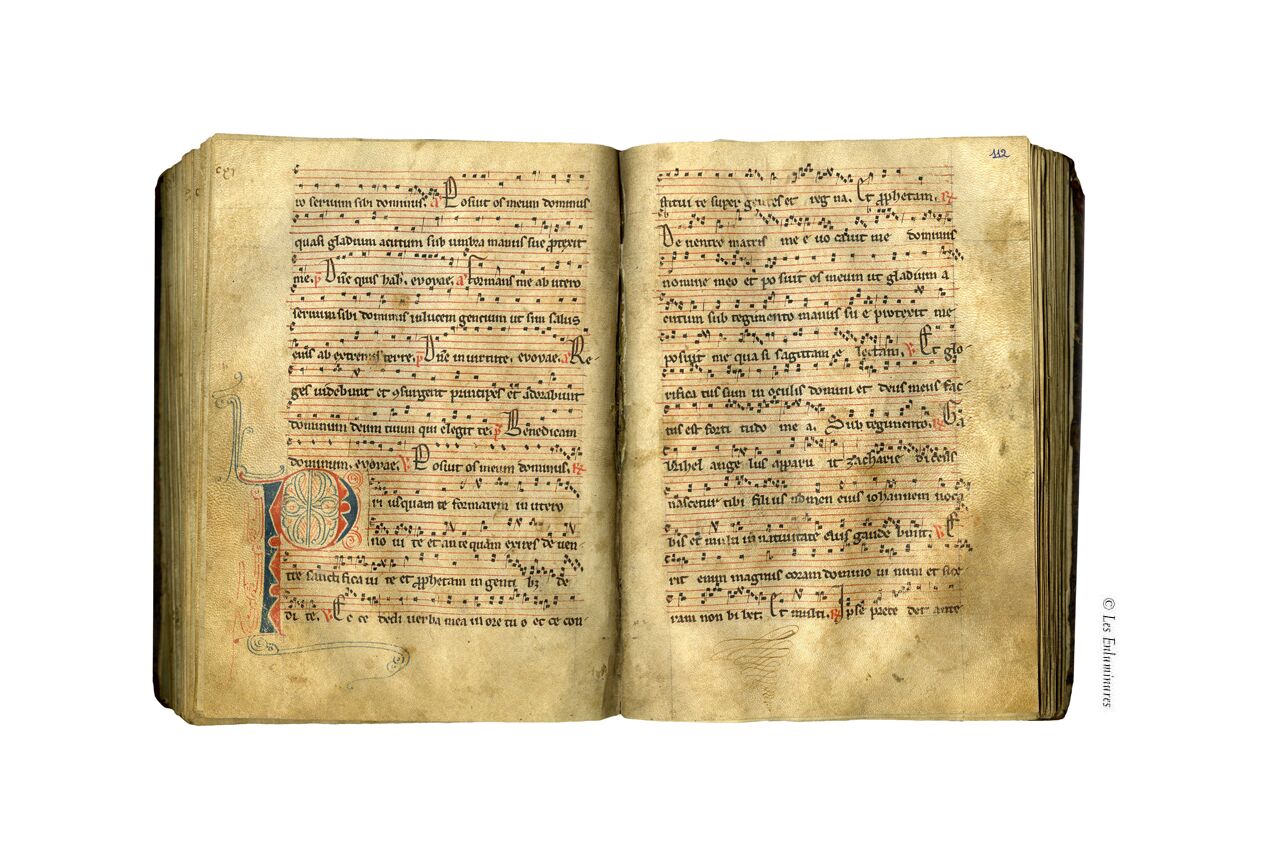 cxi
ro seruum sibi dominus. a Posuit os meum dominus
quasi gladium acutum sub umbra manus sue protexit
me. p Dne quis hab. evovae. a Formans me ab utero
seruum sibi dominus in lucem gencium ut sim salus
eius ab extremis terre. p Dne in uirtute. evovae. a Re-
ges uidebunt et ꝯsurgent principes et adorabunt
dominum deum tuum qui elegit te. p Benedicam
dominum. evovae. V Posuit os meum dominus. R
Pri usquam te formarem in utero
no ui te et an te quam exires de uen
tre sancti fica ui te et prophetam in genti bꝫ de
di te. V E c ce dedi uerba mea in ore tu o et ec ce con
112
stitui te super gentes et reg na. Et prophetam. R
De uentre matris me e uo cauit me dominus
nomine meo et po suit os meum ut gladium a
cutum sub tegumento manus su e protexit me
posuit me qua si sagittam e lectam. V Et glo-
rifica tus sum in oculis domini et deus meus fac-
tus est forti tudo me a. Sub tegumento. R Ga
brihel ange lus apparu it zacharie dicens
nascetur tibi fili us nomen eius iohannem uoca
bis et multi in natiuitate eius gaude bunt. V E
rit enim magnus coram domino ui num et sice
ram non bi bet. Et multi. R Ipse prece det ante
© Les Enluminures